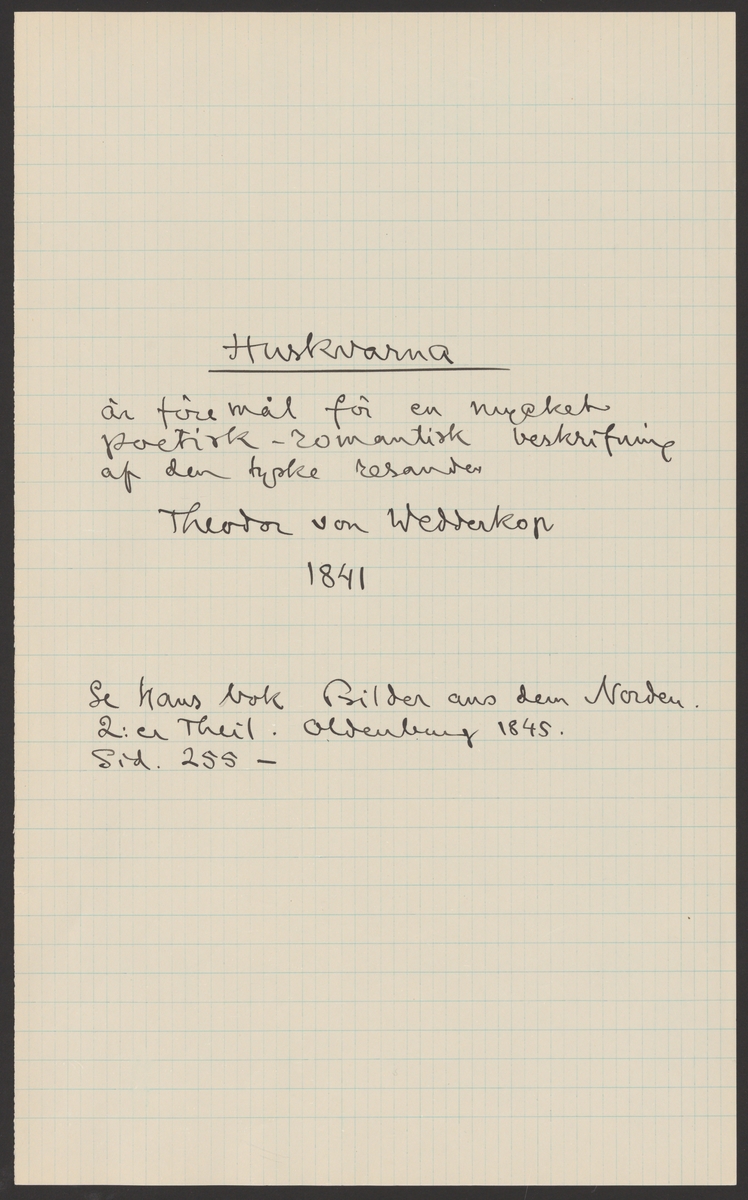 Huskvarna
är föremål för en mycket
poetisk-romantisk beskrifning
af den tyske resanden
Theodor von Wedderkop
1841
Se hans bok Bilder aus dem Norden.
2:er Theil. Oldenburg 1845.
Sid. 255 —